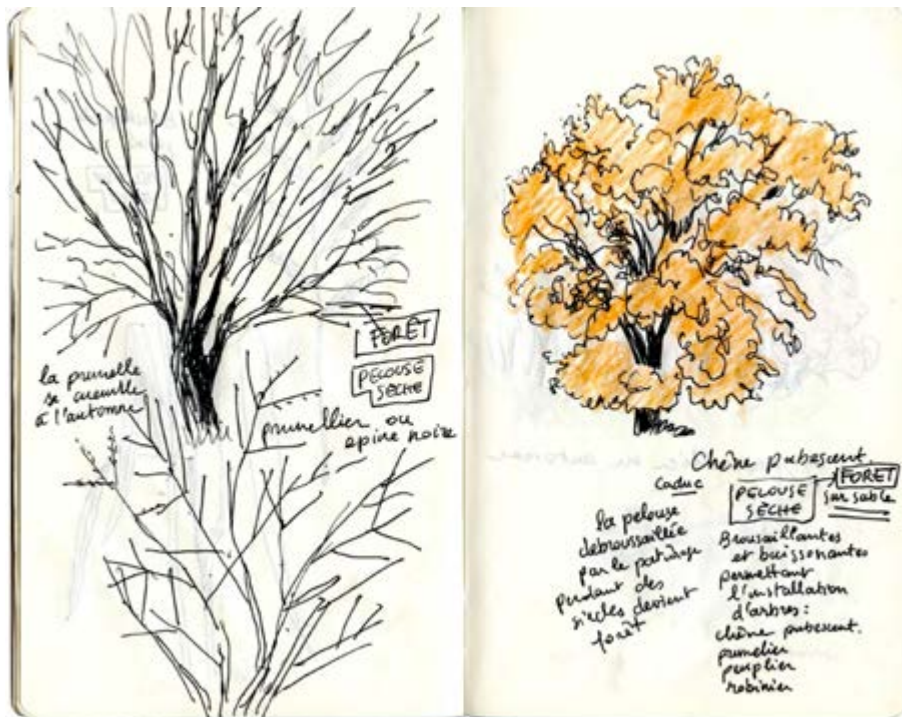 la prunelle
se cueille
à l'automne
FORÊT
PELOUSE
SÈCHE
prunellier ou
épine noire
Chêne pubescent.
caduc
PELOUSE
SÈCHE
FORET
sur sable
la pelouse
débroussaillée
par le pâturage
pendant des
siècles devient
forêt
Broussaillantes
et buissonantes
permettant
l'installation
d'arbres:
chêne pubescent.
prunelier
peuplier
robinier